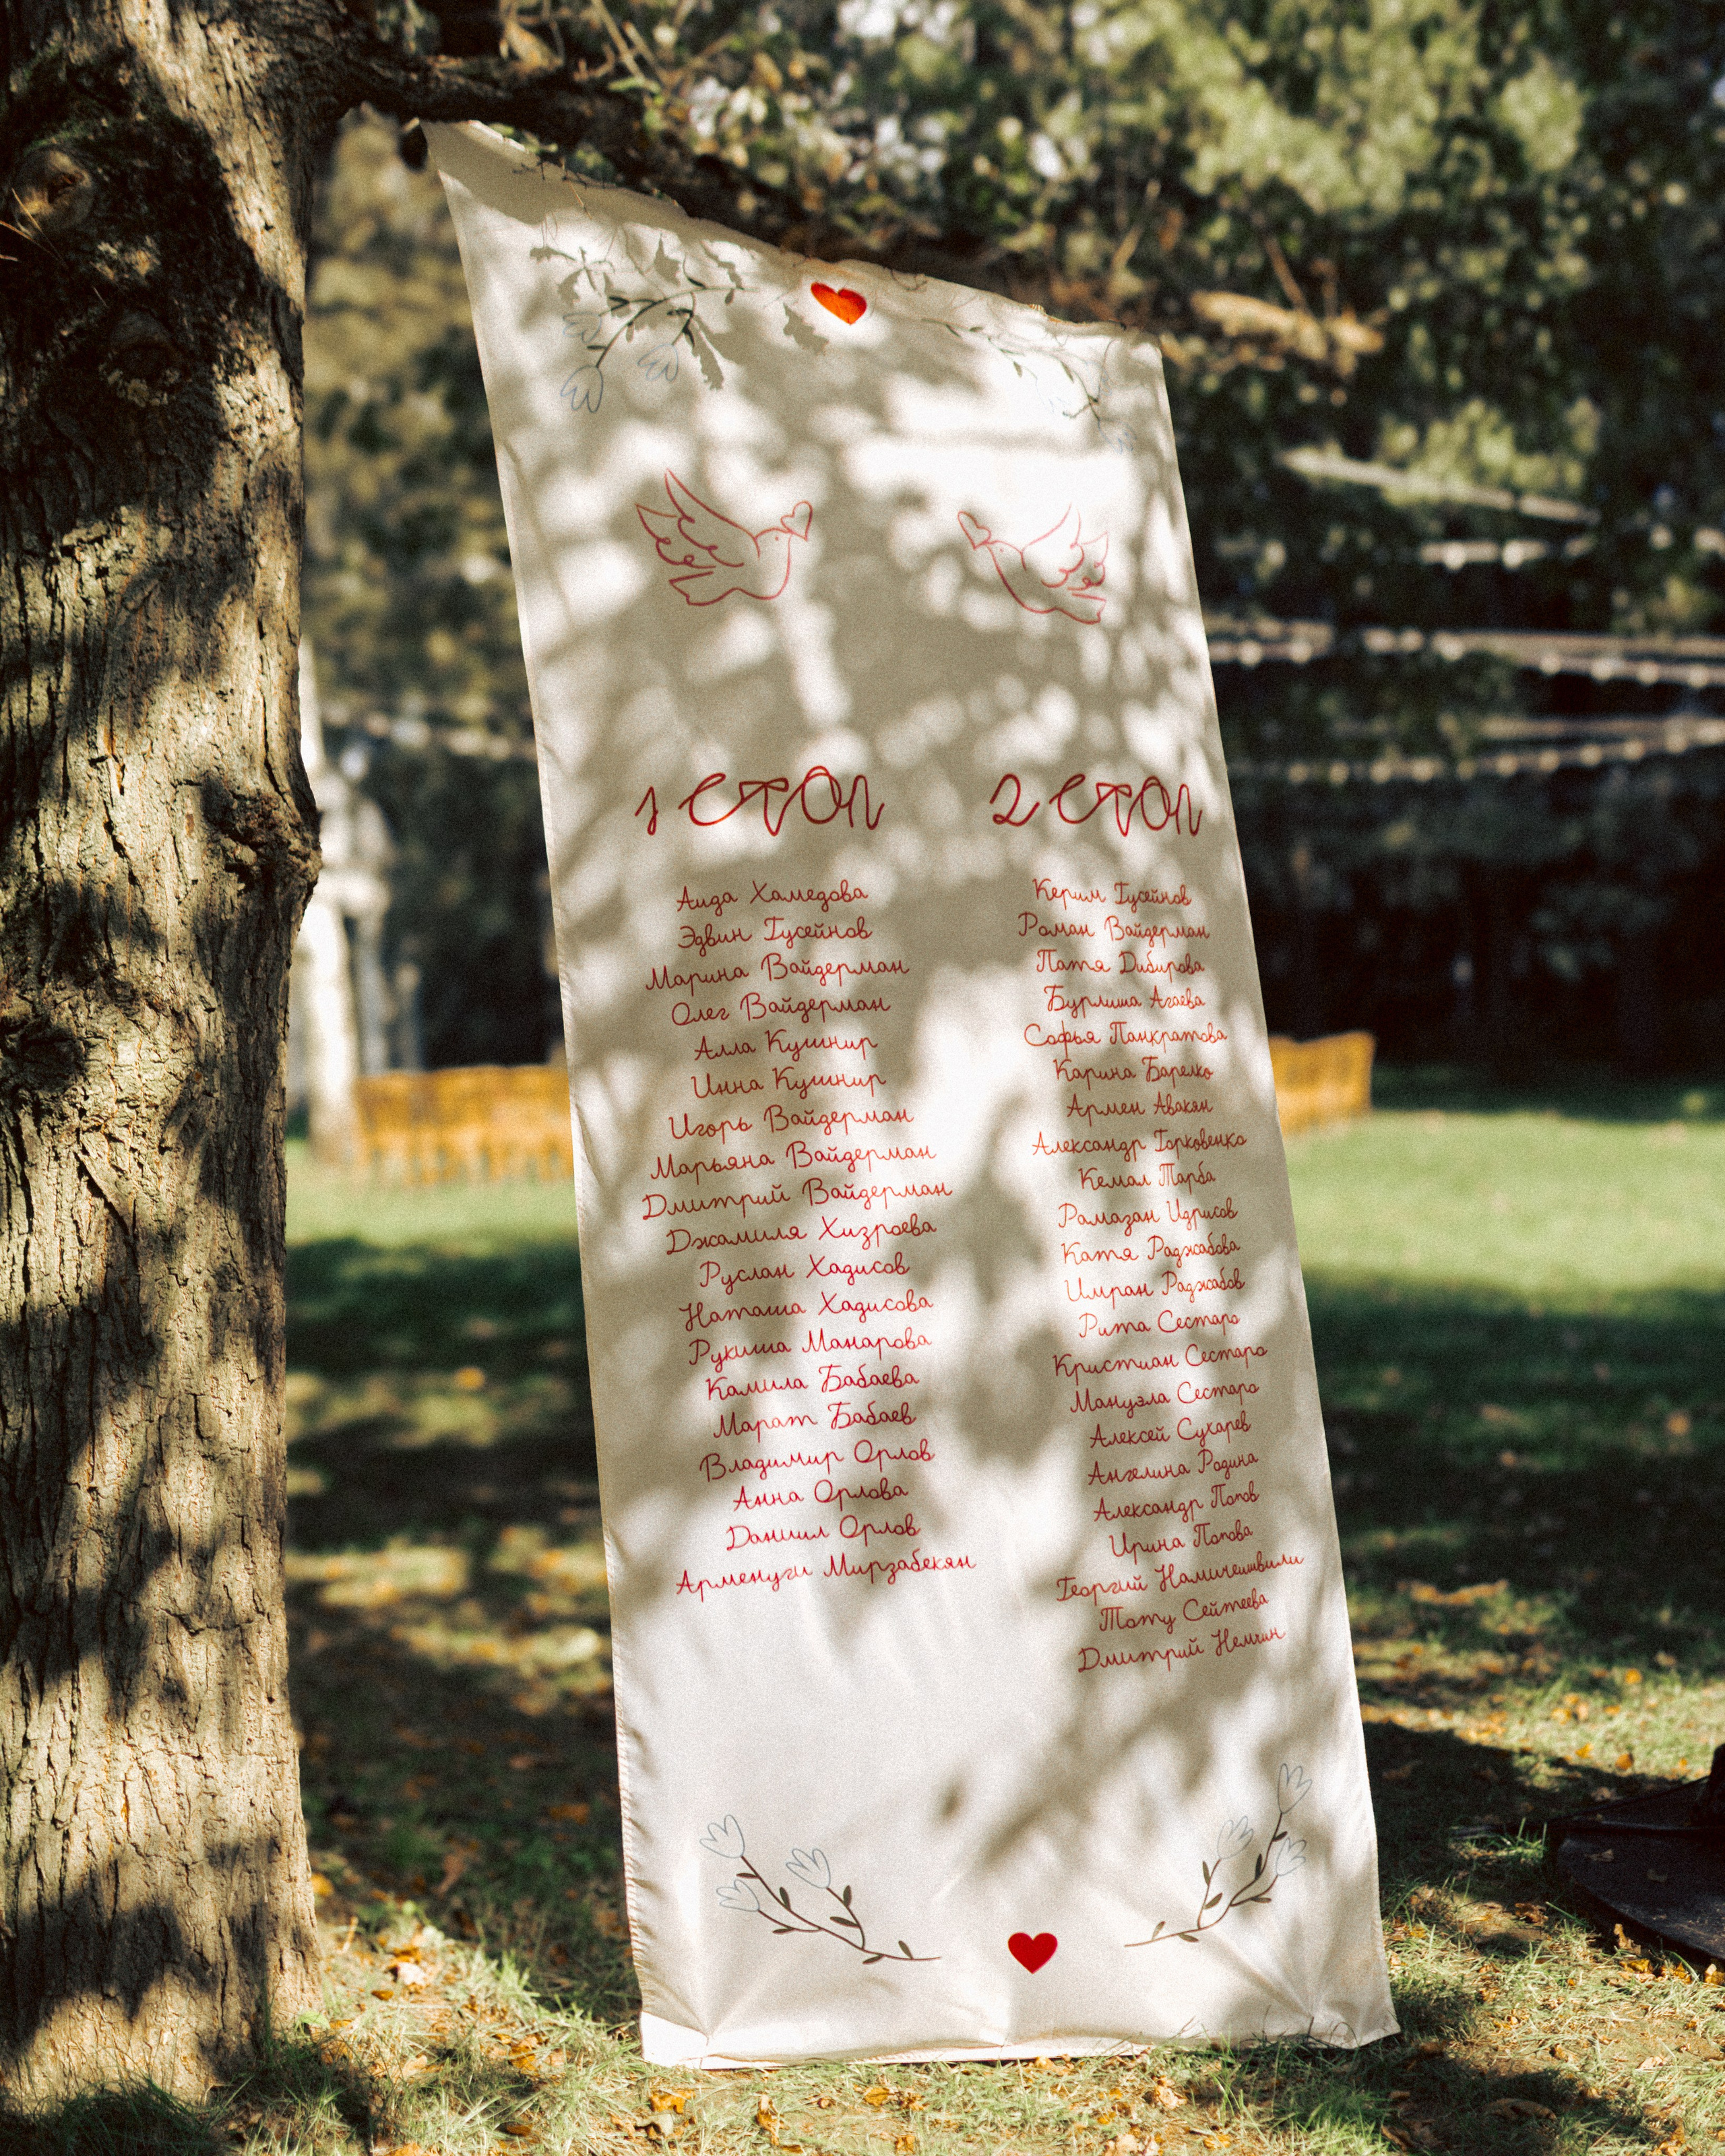 1 стол
Аида Хамедова
Эдвин Гусейнов
Марина Вайдерман
Олег Вайдерман
Алла Кушнир
Инна Кушнир
Игорь Вайдерман
Марьяна Вайдерман
Дмитрий Вайдерман
Джамиля Хизроева
Руслан Хадисов
Наташа Хадисова
Рукиша Манарова
Камила Бабаева
Марат Бабаев
Владимир Орлов
Анна Орлова
Даниил Орлов
Арменуги Мирзабекян
2 стол
Керим Гусейнов
Роман Вайдерман
Патя Дибирова
Бурлиша Агаева
Софья Панкратова
Карина Барелко
Армен Авакян
Александр Горковенко
Кемал Тарба
Рамазан Идрисов
Катя Раджабова
Имран Раджабов
Рита Сестаро
Кристиан Сестаро
Мануэла Сестаро
Алексей Сухарев
Ангелина Родина
Александр Попов
Ирина Попова
Георгий Намичешвили
Тату Сейтеева
Дмитрий Немчин